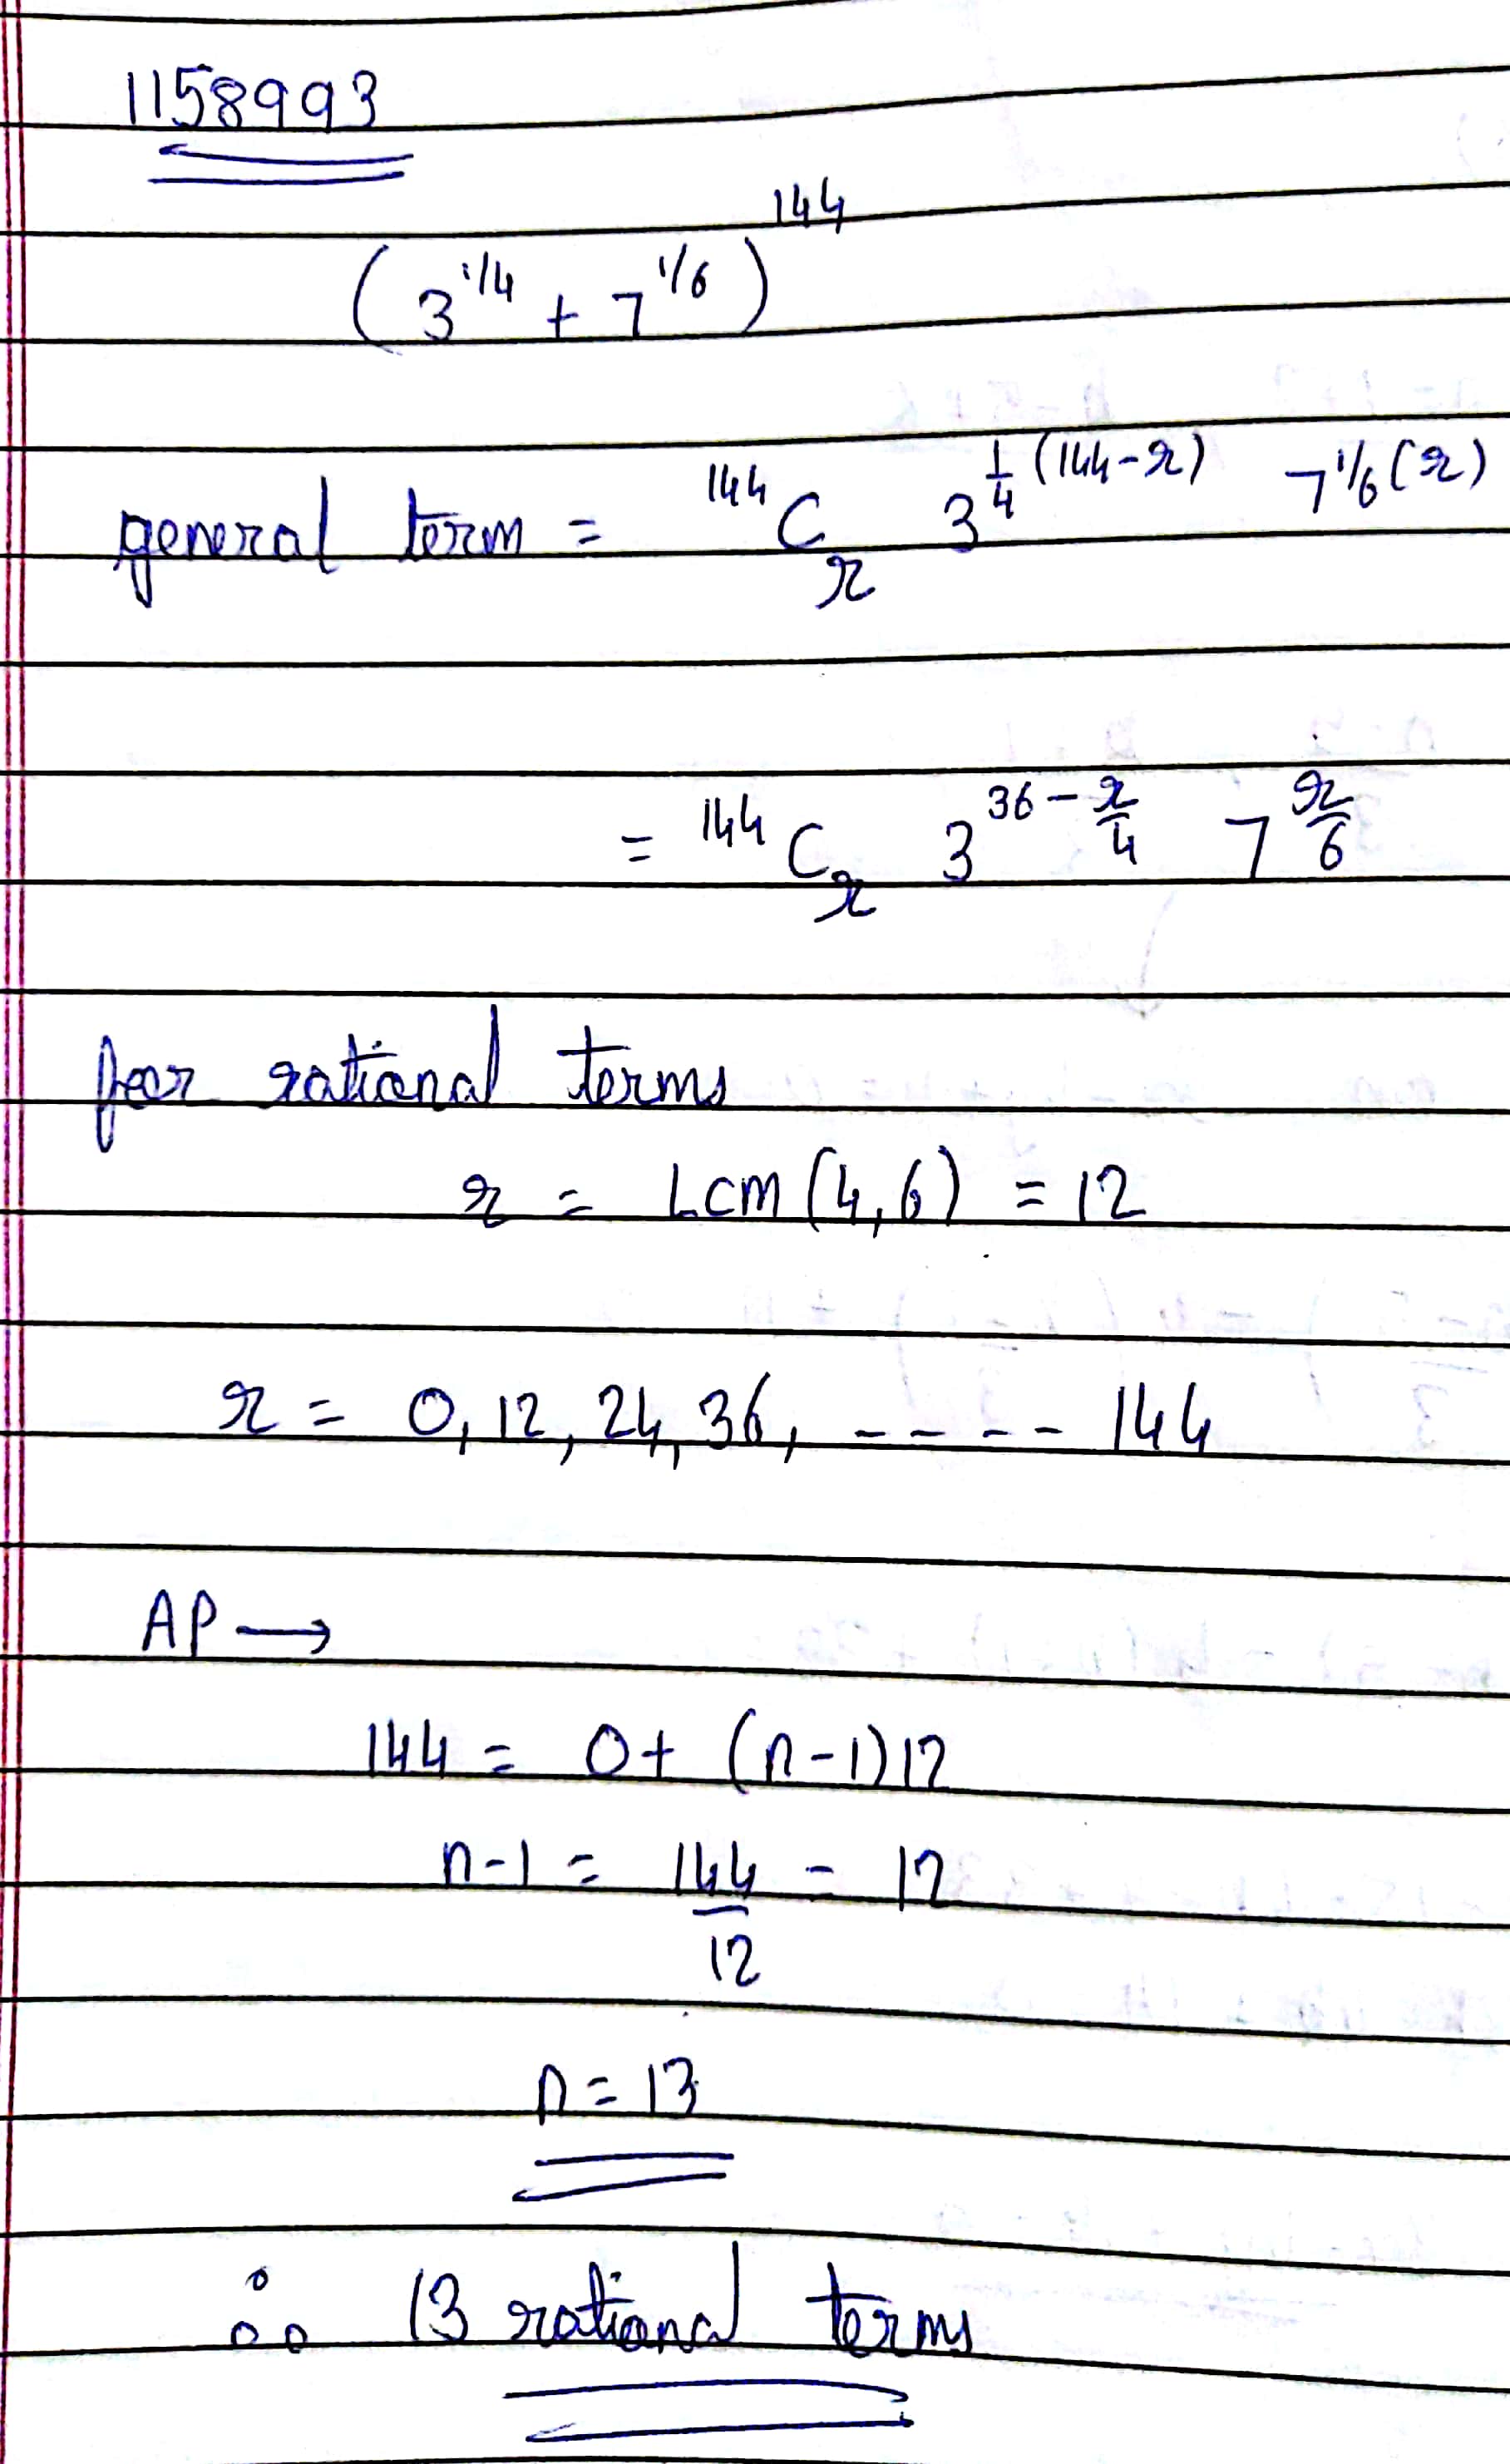 1158993
(3^{1/4} + 7^{1/6})^{144}
general term = ^{144}C_r 3^{\frac{1}{4}(144-r)} 7^{1/6(r)}
= ^{144}C_r 3^{36-\frac{r}{4}} 7^{\frac{r}{6}}
for rational terms
r = LCM (4,6) = 12
r = 0, 12, 24, 36, ---- 144
AP →
144 = 0 + (n-1)12
n-1 = \frac{144}{12} = 12
n = 13
∴ 13 rational terms